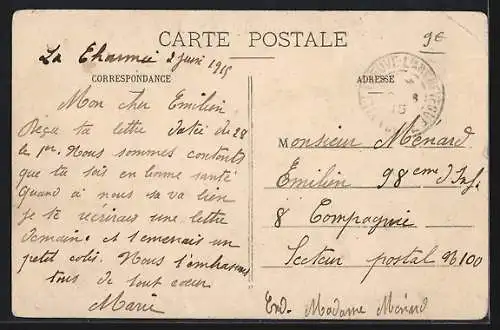 CARTE POSTALE
9€
La Charmée 2 juin 1915
CORRESPONDANCE
ADRESSE
Mon cher Emilien
Reçu ta lettre datée de 28
le 1er. Nous sommes contents
que tu sois en bonne santé
quand à nous sa va bien
je te récrirais une lettre
demain. et t'enverrais un
petit colis. Nous t'embrassons
tous de tout cœur
Marie
Monsieur Ménard
Emilien 98eme d'Inf.
8 Compagnie
Secteur postal N 100
End. Madame Ménard